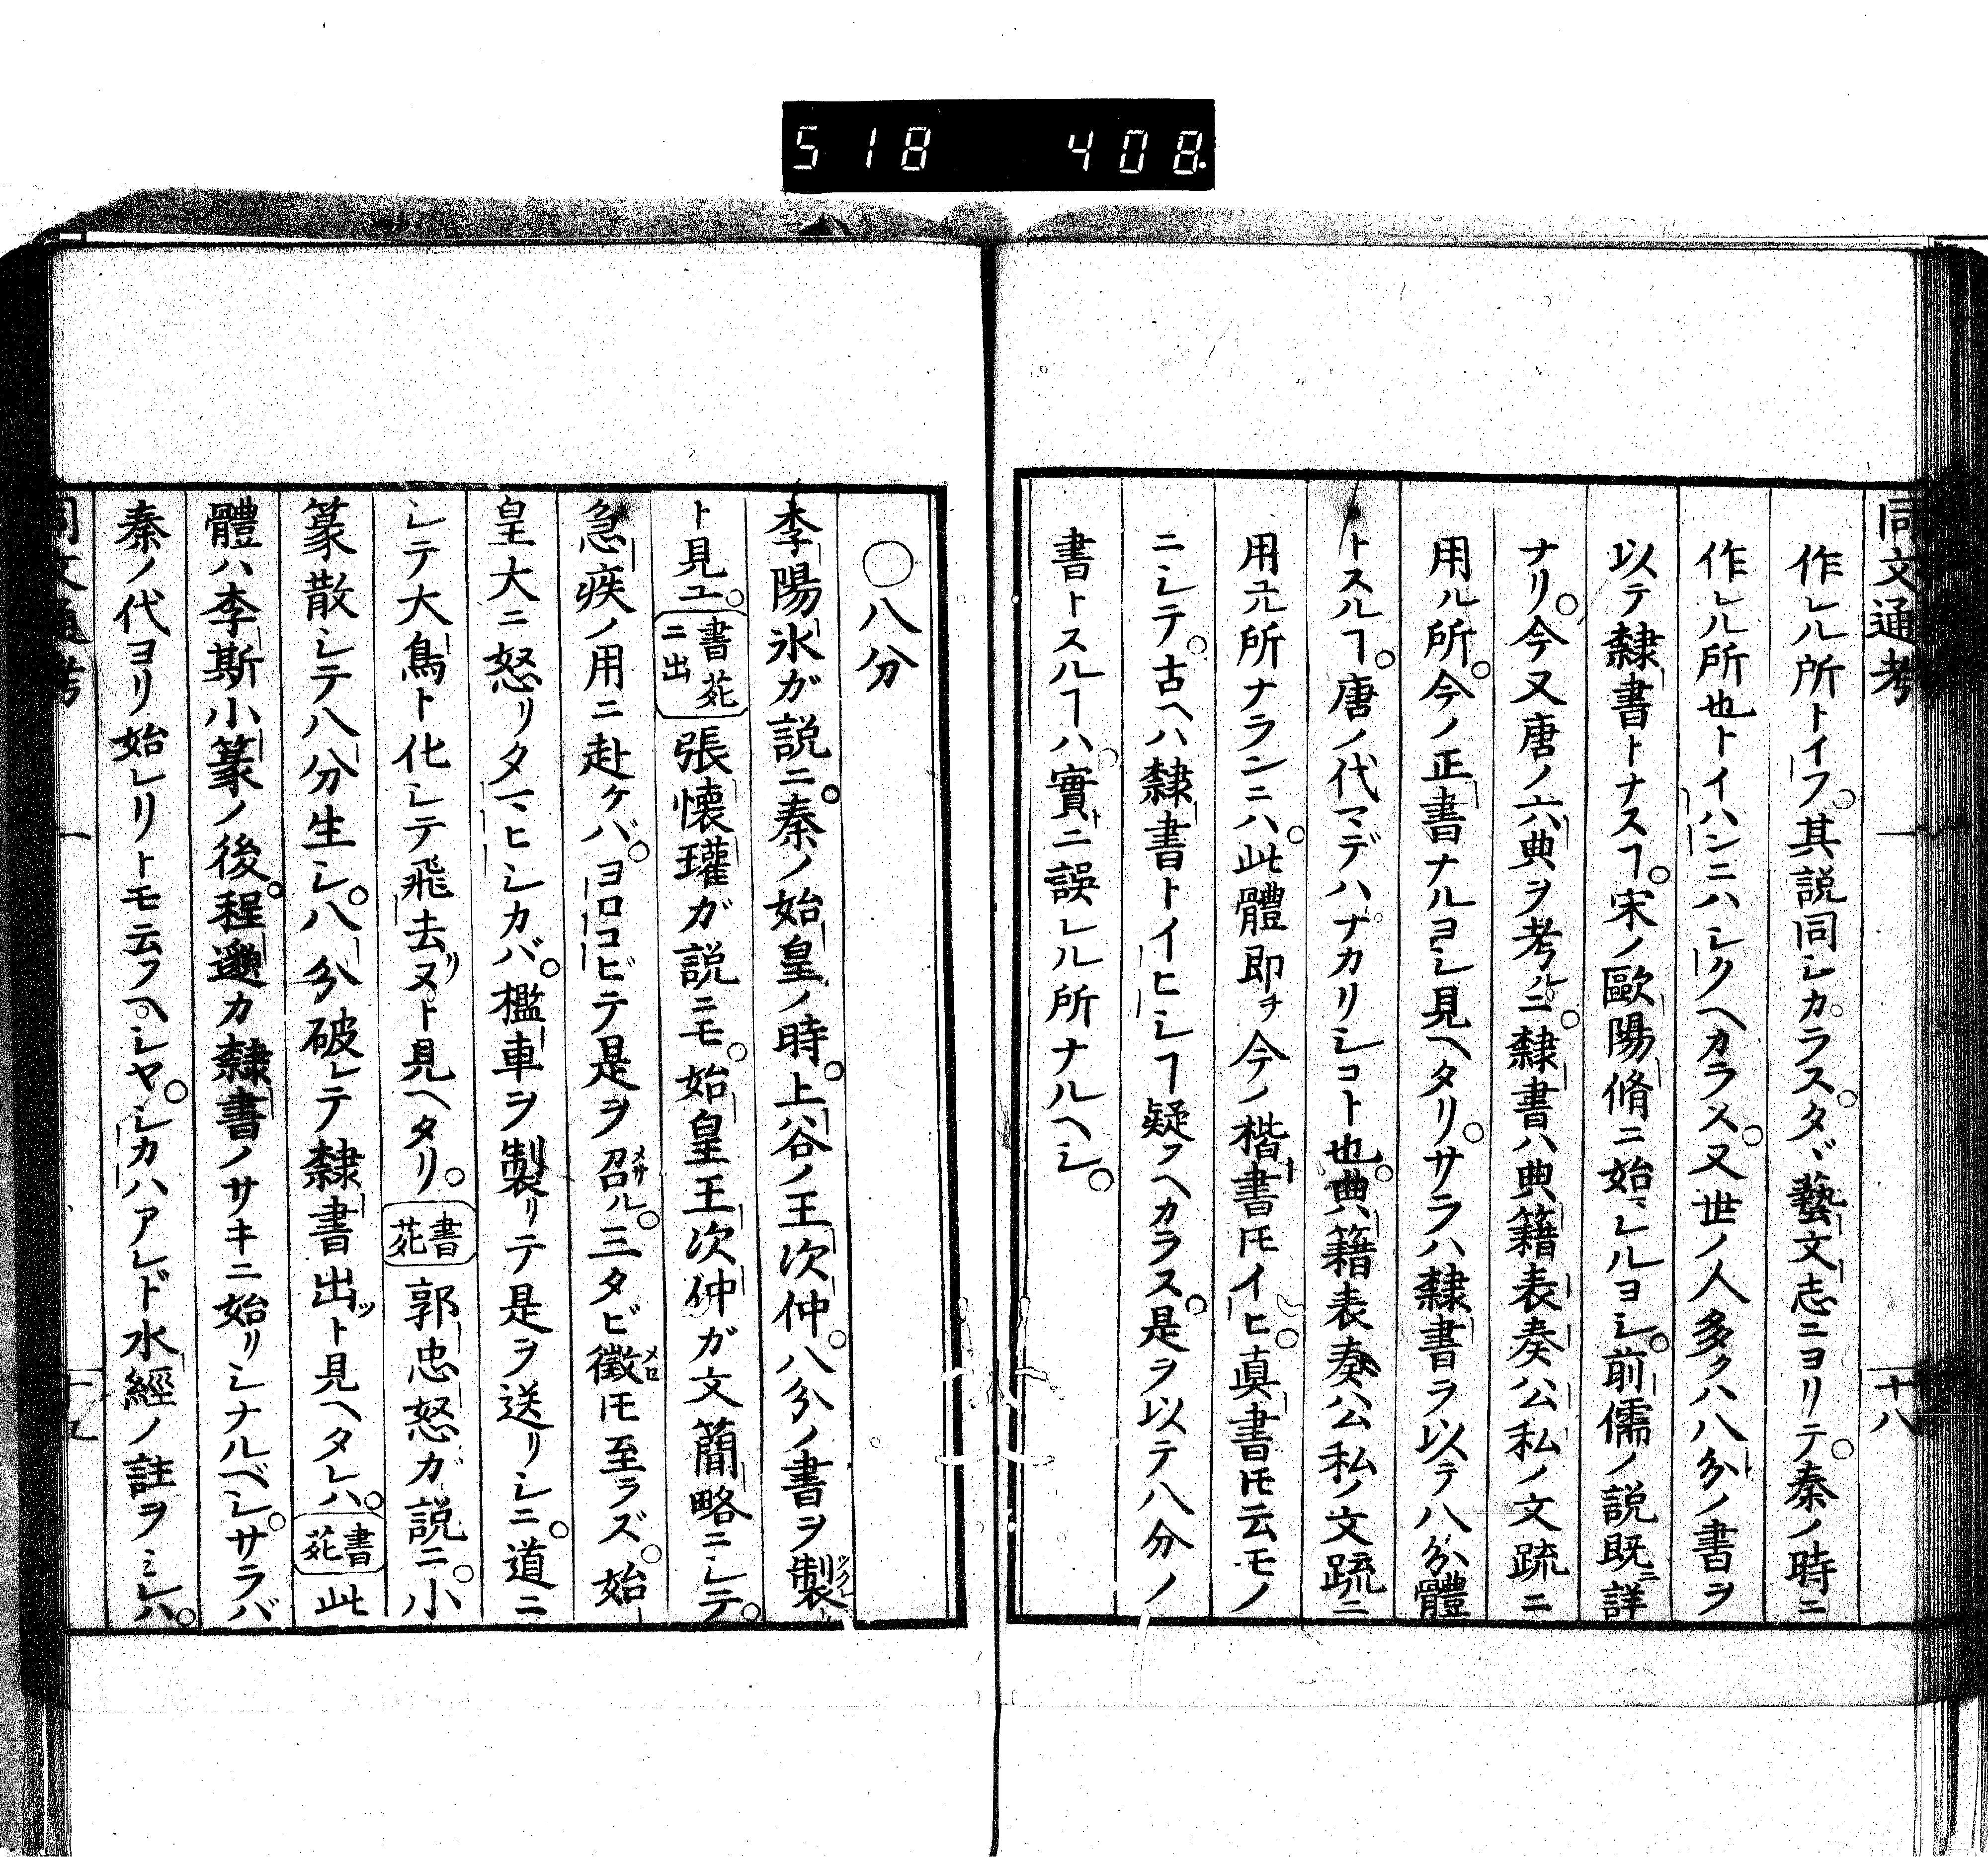 518 408
同文通考 一 十八
作レル所トイフ。其説同シカラス。タヾ藝文志ニヨリテ。秦ノ時ニ
作レル所也トイハンニハシクヘカラス。又世ノ人多クハ八分ノ書ヲ
以テ隸書トナスヿ。宋ノ歐陽脩ニ始レルヨシ。前儒ノ説既ニ詳
ナリ。今又唐ノ六典ヲ考ルニ。隸書ハ典籍表奏公私ノ文疏ニ
用ル所。今ノ正書ナルヨシ見ヘタリ。サラハ隸書ヲ以テ八分體
トスルヿ。唐ノ代マデハナカリシコト也。典籍表奏公私ノ文疏ニ
用元所ナランニハ。此體即ヲ今ノ楷書𪜈イヒ。真書𪜈云モノ
ニシテ。古ヘハ隸書トイヒシヿ疑フヘカラス。是ヲ以テ八分ノ
書トスルヿハ。實ニ誤レル所ナルヘシ。
〇八分
李陽氷ガ説ニ。秦ノ始皇ノ時。上谷ノ王次仲。八分ノ書ヲ製
ト見ユ。書苑ニ出 張懐瓘ガ説ニモ。始皇王次仲ガ文簡略ニシテ。
急疾ノ用ニ赴ケバ。ヨロコビテ是ヲ召メサル。三タビ徴メセ𪜈至ラズ。始
皇大ニ怒リタマヒシカバ。檻車ヲ製リテ是ヲ送リシニ。道ニ
シテ大鳥ト化シテ飛去リヌト見ヘタリ。書苑 郭忠怒ガ説ニ。小
篆散シテ八分生シ。八分破レテ隸書出ツト見ヘタレハ。書苑 此
體ハ李斯小篆ノ後。程邈カ隸書ノサキニ始リシナルベシ。サラバ
秦ノ代ヨリ始レリトモ云フヘシヤ。シカハアレド水經ノ註ヲミレハ。
一